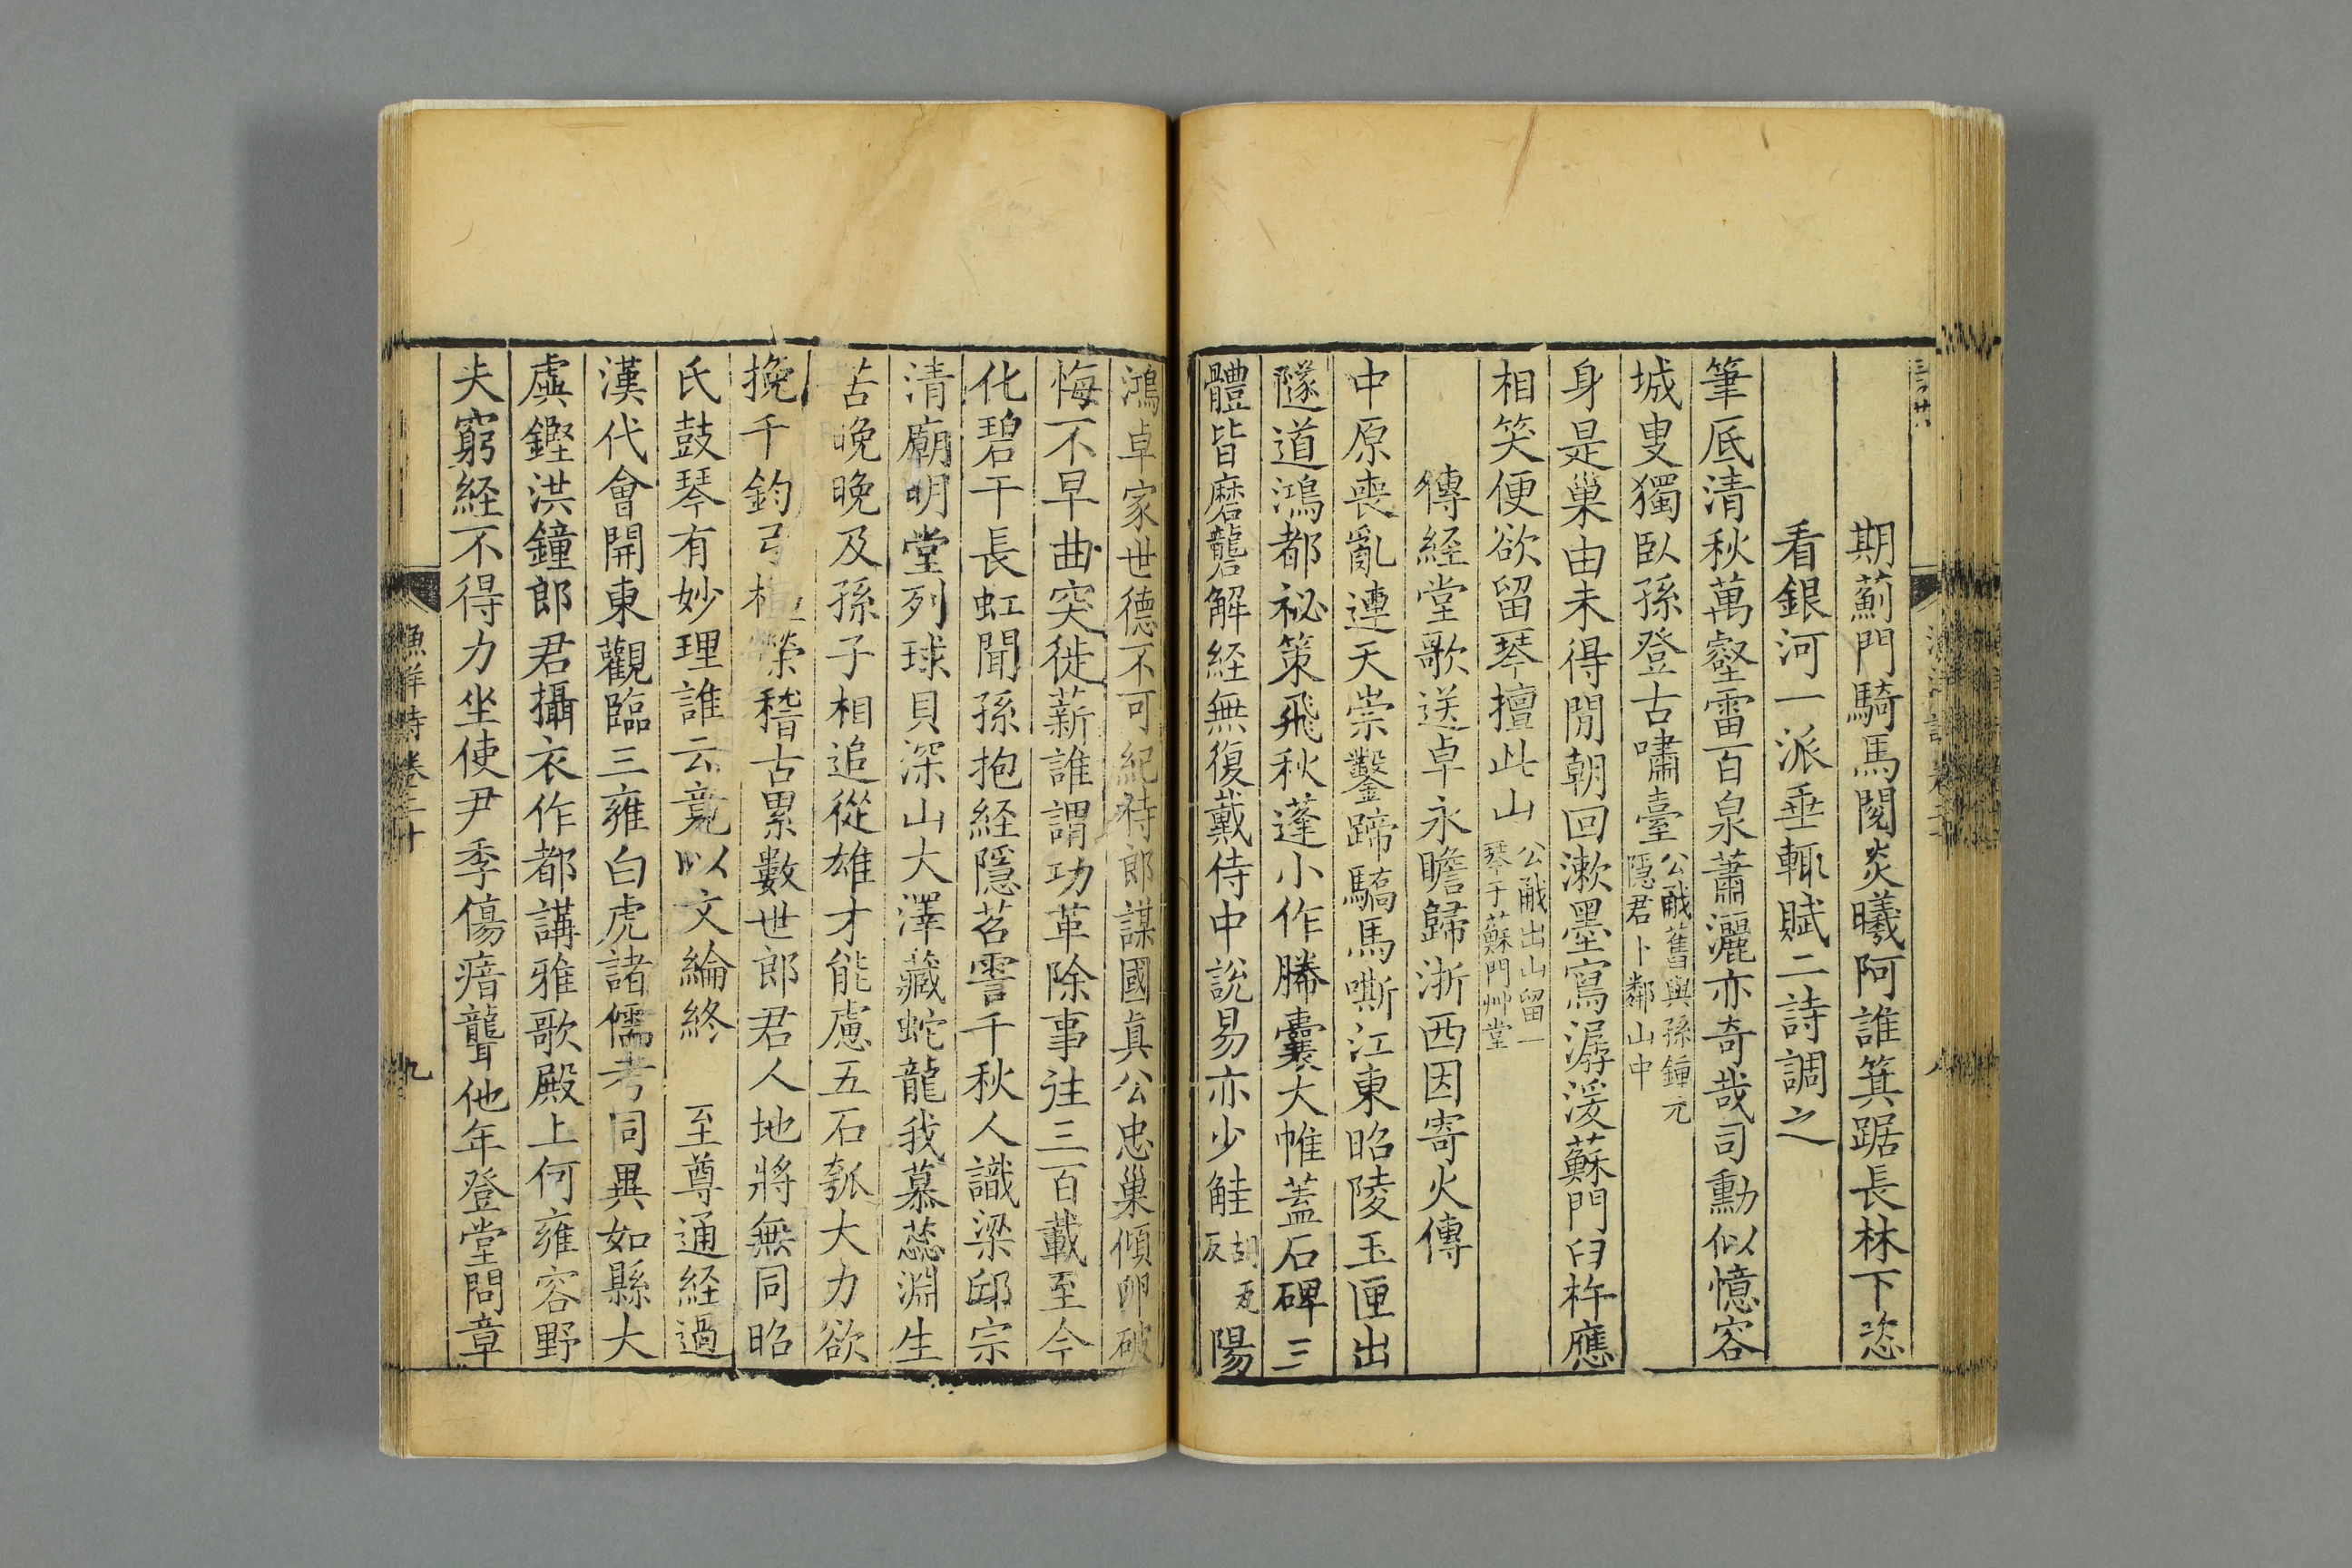 期薊門騎馬閱炎曦阿誰箕踞長林下恣
看銀河一派垂輒賦二詩調之
筆底清秋萬壑雷百泉蕭灑亦奇哉司勳似憶容
城叟獨臥孫登古嘯臺公㦷舊與孫鍾元隱君卜鄰山中
身是巢由未得閒朝回漱墨寫潺湲蘇門臼杵應
相笑便欲留琴擅此山公㦷出山留一琴于蘇門艸堂
傳経堂歌送卓永瞻歸浙西因寄火傳
中原喪亂連天崇鑿蹄驕馬嘶江東昭陵玉匣出
隧道鴻都祕策飛秋蓬小作縢囊大帷蓋石碑三
體皆磨礱解経無復戴侍中說易亦少鮭胡瓦反陽
鴻卓家世德不可紀侍郎謀國真公忠巢傾卵破
悔不早曲突徙薪誰謂功革除事往三百載至今
化碧干長虹聞孫抱経隱苕霅千秋人識梁邱宗
清廟明堂列球貝深山大澤藏蛇龍我慕蕊淵生
苦晚晚及孫子相追從雄才能慮五石瓠大力欲
挽千鈞弓桓榮稽古累數世郎君人地將無同昭
氏鼓琴有妙理誰云竟以文綸終 至尊通経過
漢代會開東觀臨三雍白虎諸儒考同異如縣大
虡鏗洪鐘郎君攝衣作都講雅歌殿上何雍容野
夫窮経不得力坐使尹季傷瘖聾他年登堂問章
漁洋詩卷二十
九